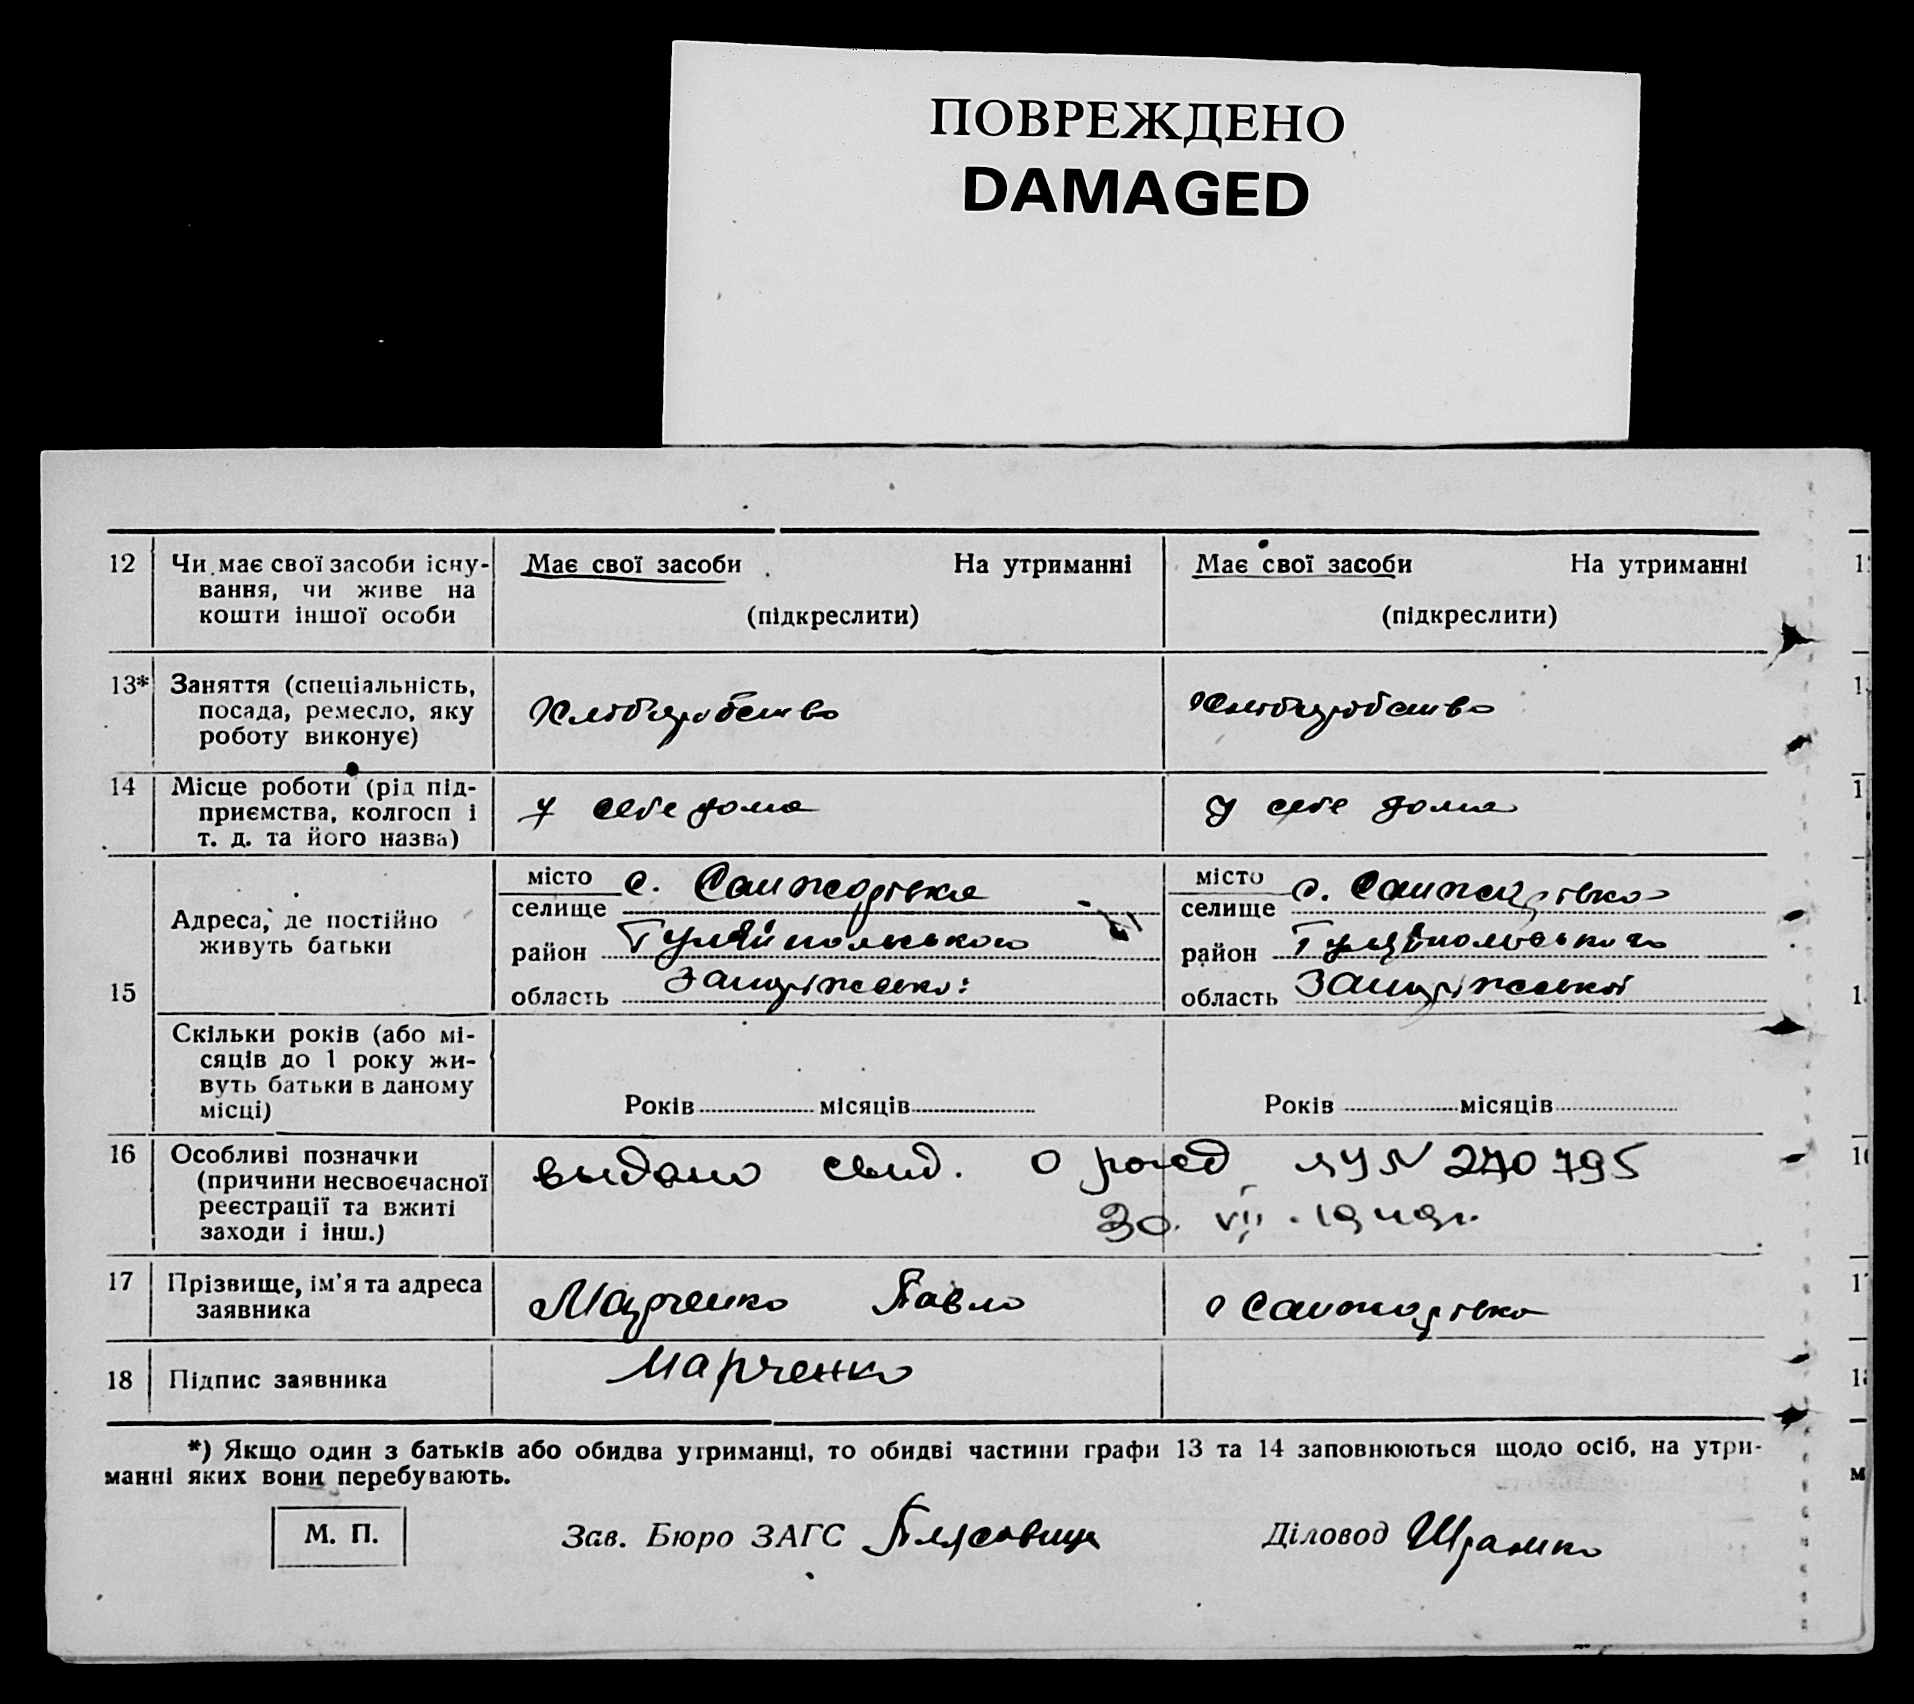 ПОВРЕЖДЕНО
DAMAGED
12 Чи має свої засоби існу- Має свої засоби На утриманні Має свої засоби На утриманні
вання, чи живе на
кошти іншої особи (підкреслити) (підкреслити)
13* Заняття (спеціальність,
посада, ремесло, яку Хліборобство Хліборобство
роботу виконує)
14 Місце роботи (рід під-
приємства, колгосп і у себе дома у себе дома
т. д. та його назва)
15 Адреса, де постійно
живуть батьки
місто с. місто с.
селище селище
район район
область область
Скільки років (або мі-
сяців до 1 року жи-
вуть батьки в даному
місці) Років місяців Років місяців
16 Особливі позначки выдано свид. о рожд ЯУ N 270795
(причини несвоєчасної
реєстрації та вжиті 30. VII. 1949г.
заходи і інш.)
17 Прізвище, ім'я та адреса Марченко Павло
заявника
18 Підпис заявника Марченко
*) Якщо один з батьків або обидва утриманці, то обидві частини графи 13 та 14 заповнюються щодо осіб, на утри-
манні яких вони перебувають.
М. П. Зав. Бюро ЗАГС Діловод